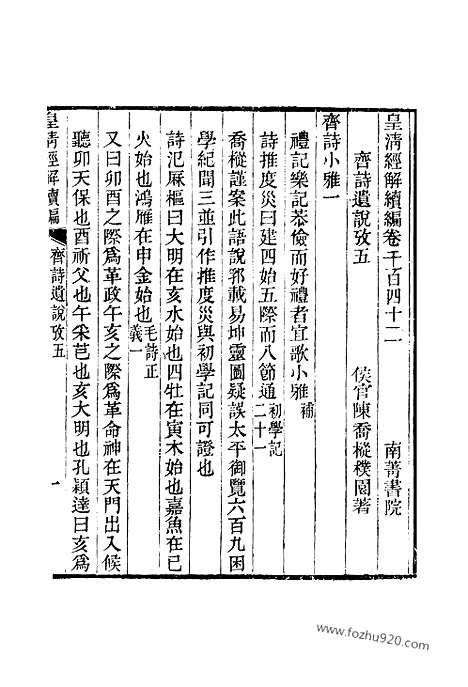 皇淸經解續編卷一千百四十二
南菁書院
齊詩遺說攷五
侯官陳喬樅樸園著
齊詩小雅一
禮記樂記恭儉而好禮者宜歌小雅補
詩推度災曰建四始五際而八節通初學記二十一
喬樅謹案此語說郛載易坤靈圖疑誤太平御覽六百九困
學紀聞三並引作推度災與初學記同可證也
詩氾厤樞曰大明在亥水始也四牡在寅木始也嘉魚在巳
火始也鴻雁在申金始也毛詩正義一
又曰卯酉之際爲革政午亥之際爲革命神在天門出入候
聽卯天保也酉祈父也午采芑也亥大明也孔穎達曰亥爲
皇淸經解續編
齊詩遺說攷五
一
www.fozhu920.com